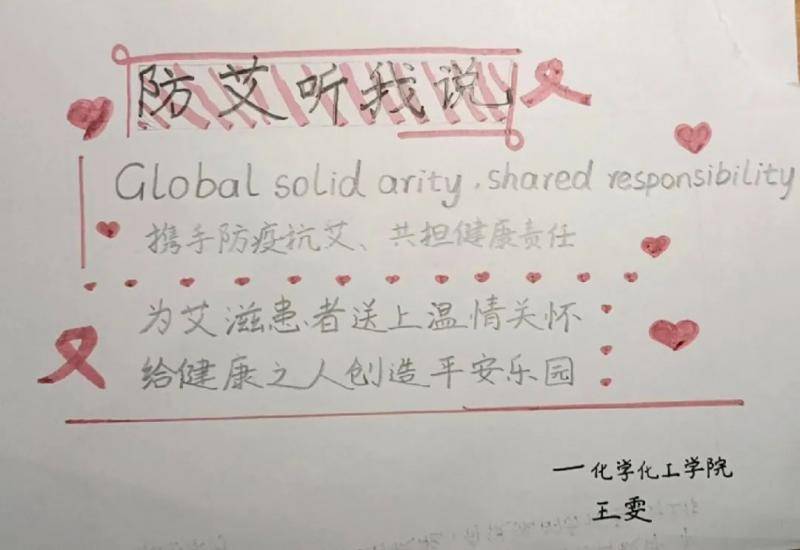 防艾听我说
Global solid arity, shared responsibility
携手防疫抗艾、共担健康责任
为艾滋患者送上温情关怀
给健康之人创造平安乐园
一化学化工学院
王雯